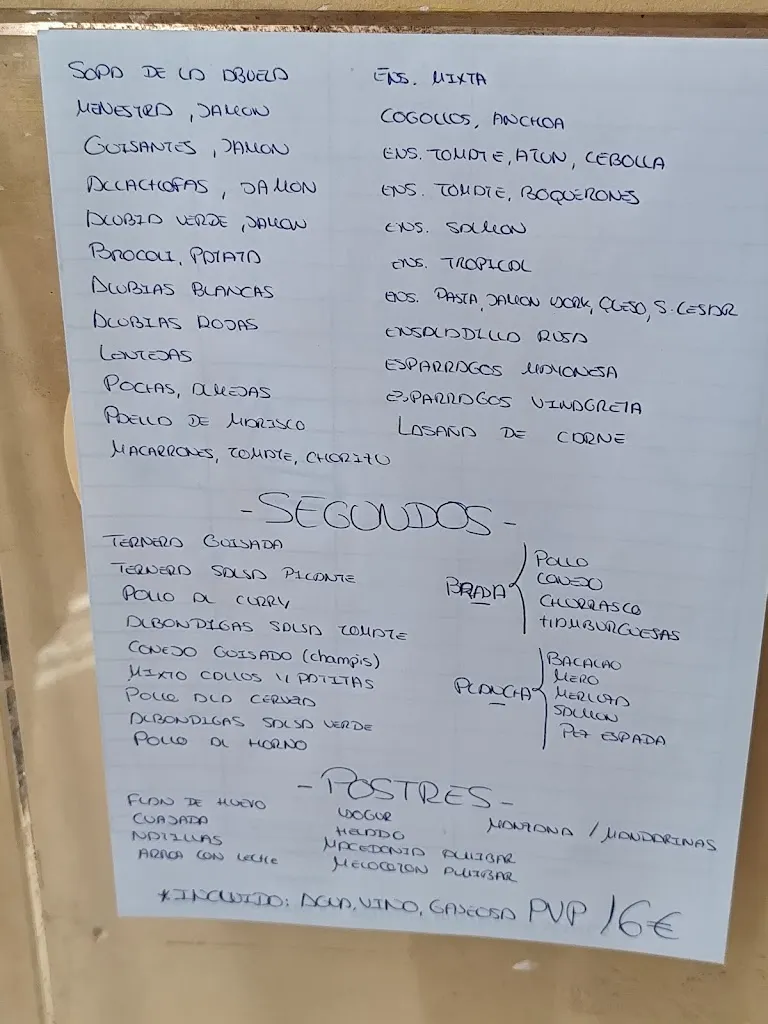 SOPA DE LA ABUELA
MENESTRA, JAMON
GUISANTES, JAMON
ALCACHOFAS, JAMON
ALUBIA VERDE, JAMON
BROCOLI, PATATA
ALUBIAS BLANCAS
ALUBIAS ROJAS
LENTEJAS
POCHAS, ALMEJAS
PAELLA DE MARISCO
MACARRONES, TOMATE, CHORIZO
ENS. MIXTA
COGOLLOS, ANCHOA
ENS. TOMATE, ATUN, CEBOLLA
ENS. TOMATE, BOQUERONES
ENS. SALMON
ENS. TROPICAL
ENS. PASTA, JAMON YORK, QUESO, S. CESAR
ENSALADILLA RUSA
ESPARRAGOS MAYONESA
ESPARRAGOS VINAGRETA
LASAÑA DE CARNE
- SEGUNDOS -
TERNERA GUISADA
TERNERA SALSA PICANTE
POLLO AL CURRY
ALBONDIGAS SALSA TOMATE
CONEJO GUISADO (champis)
MIXTO CALLOS Y PATITAS
POLLO ALA CERVEZA
ALBONDIGAS SALSA VERDE
POLLO AL HORNO
BRASA
POLLO
CONEJO
CHURRASCO
HAMBURGUESAS
PLANCHA
BACALAO
MERO
MERLUZA
SALMON
PEZ ESPADA
- POSTRES -
FLAN DE HUEVO
CUAJADA
NATILLAS
ARROZ CON LECHE
YOGUR
HELADO
MACEDONIA ALMIBAR
MELOCOTON ALMIBAR
MANZANA / MANDARINAS
*INCLUIDO: AGUA, VINO, GASEOSA PVP 16€